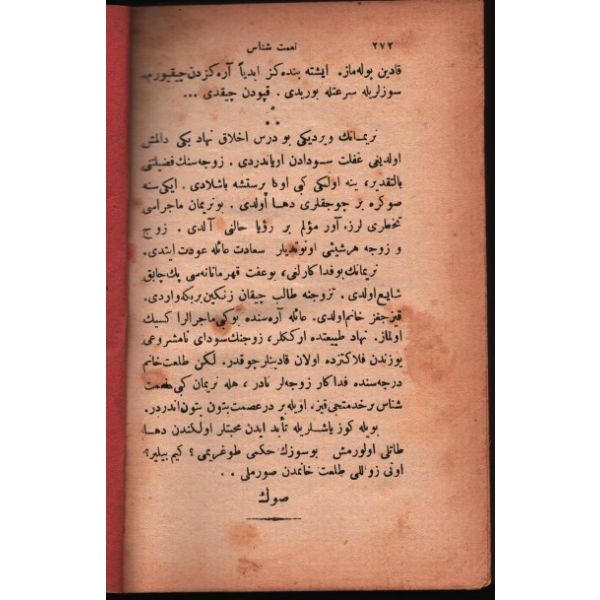 ٢٧٢ نعمت شناس
قادین بوله‌ماز. ایشته بنده‌کز ابدیاً آره‌کزدن چیقیورم.
سوزلریله سرعتله یوریدی. قپودن چیقدی ...
نریمانك ویردیکی بو درس اخلاق نهاد بکی دالمش
اولدیغی غفلت سودادن اویاندردی. زوجه‌سنك فضیلتنی
بالتقدیر، ینه اولکی کبی اوکا پرستشه باشلادی. ایکی سنه
صوکره بر چوجقلری دها اولدی. بو نریمان ماجراسی
تخطری لرزه‌آور مؤلم بر رؤیا حالنی آلدی. زوج
و زوجه هرشیئی اونوتدیلر سعادت عائله عودت ایتدی.
نریمانك بو فداکارلغی، بو عفت قهرمانانه‌سی پك چابق
شایع اولدی. تزوجنه طالب چیقان زنکین بر بکه واردی.
قیزجغز خانم اولدی. عائله آره‌سنده بوکبی ماجرالرا کسیك
اولماز. نهاد طبیعتده ارککلر، زوجنك سودای نامشروعی
یوزندن فلاکتزده اولان قادینلر چوقدر. لکن طلعت خانم
درجه‌سنده فداکار زوجه‌لر نادر، هله نریمان کبی نعمت
شناس بر خدمتجی قیز، اویله بر در عصمت بتون بتون اندردر.
بویله کوز یاشلریله تأبد ایدن محبتلر اولکندن دها
طاتلی اولورمش بوسوزك حکمی طوغریمی؟ کیم بیلیر؟
اونی زوالللی طلعت خانمدن صورملی ..
صوك